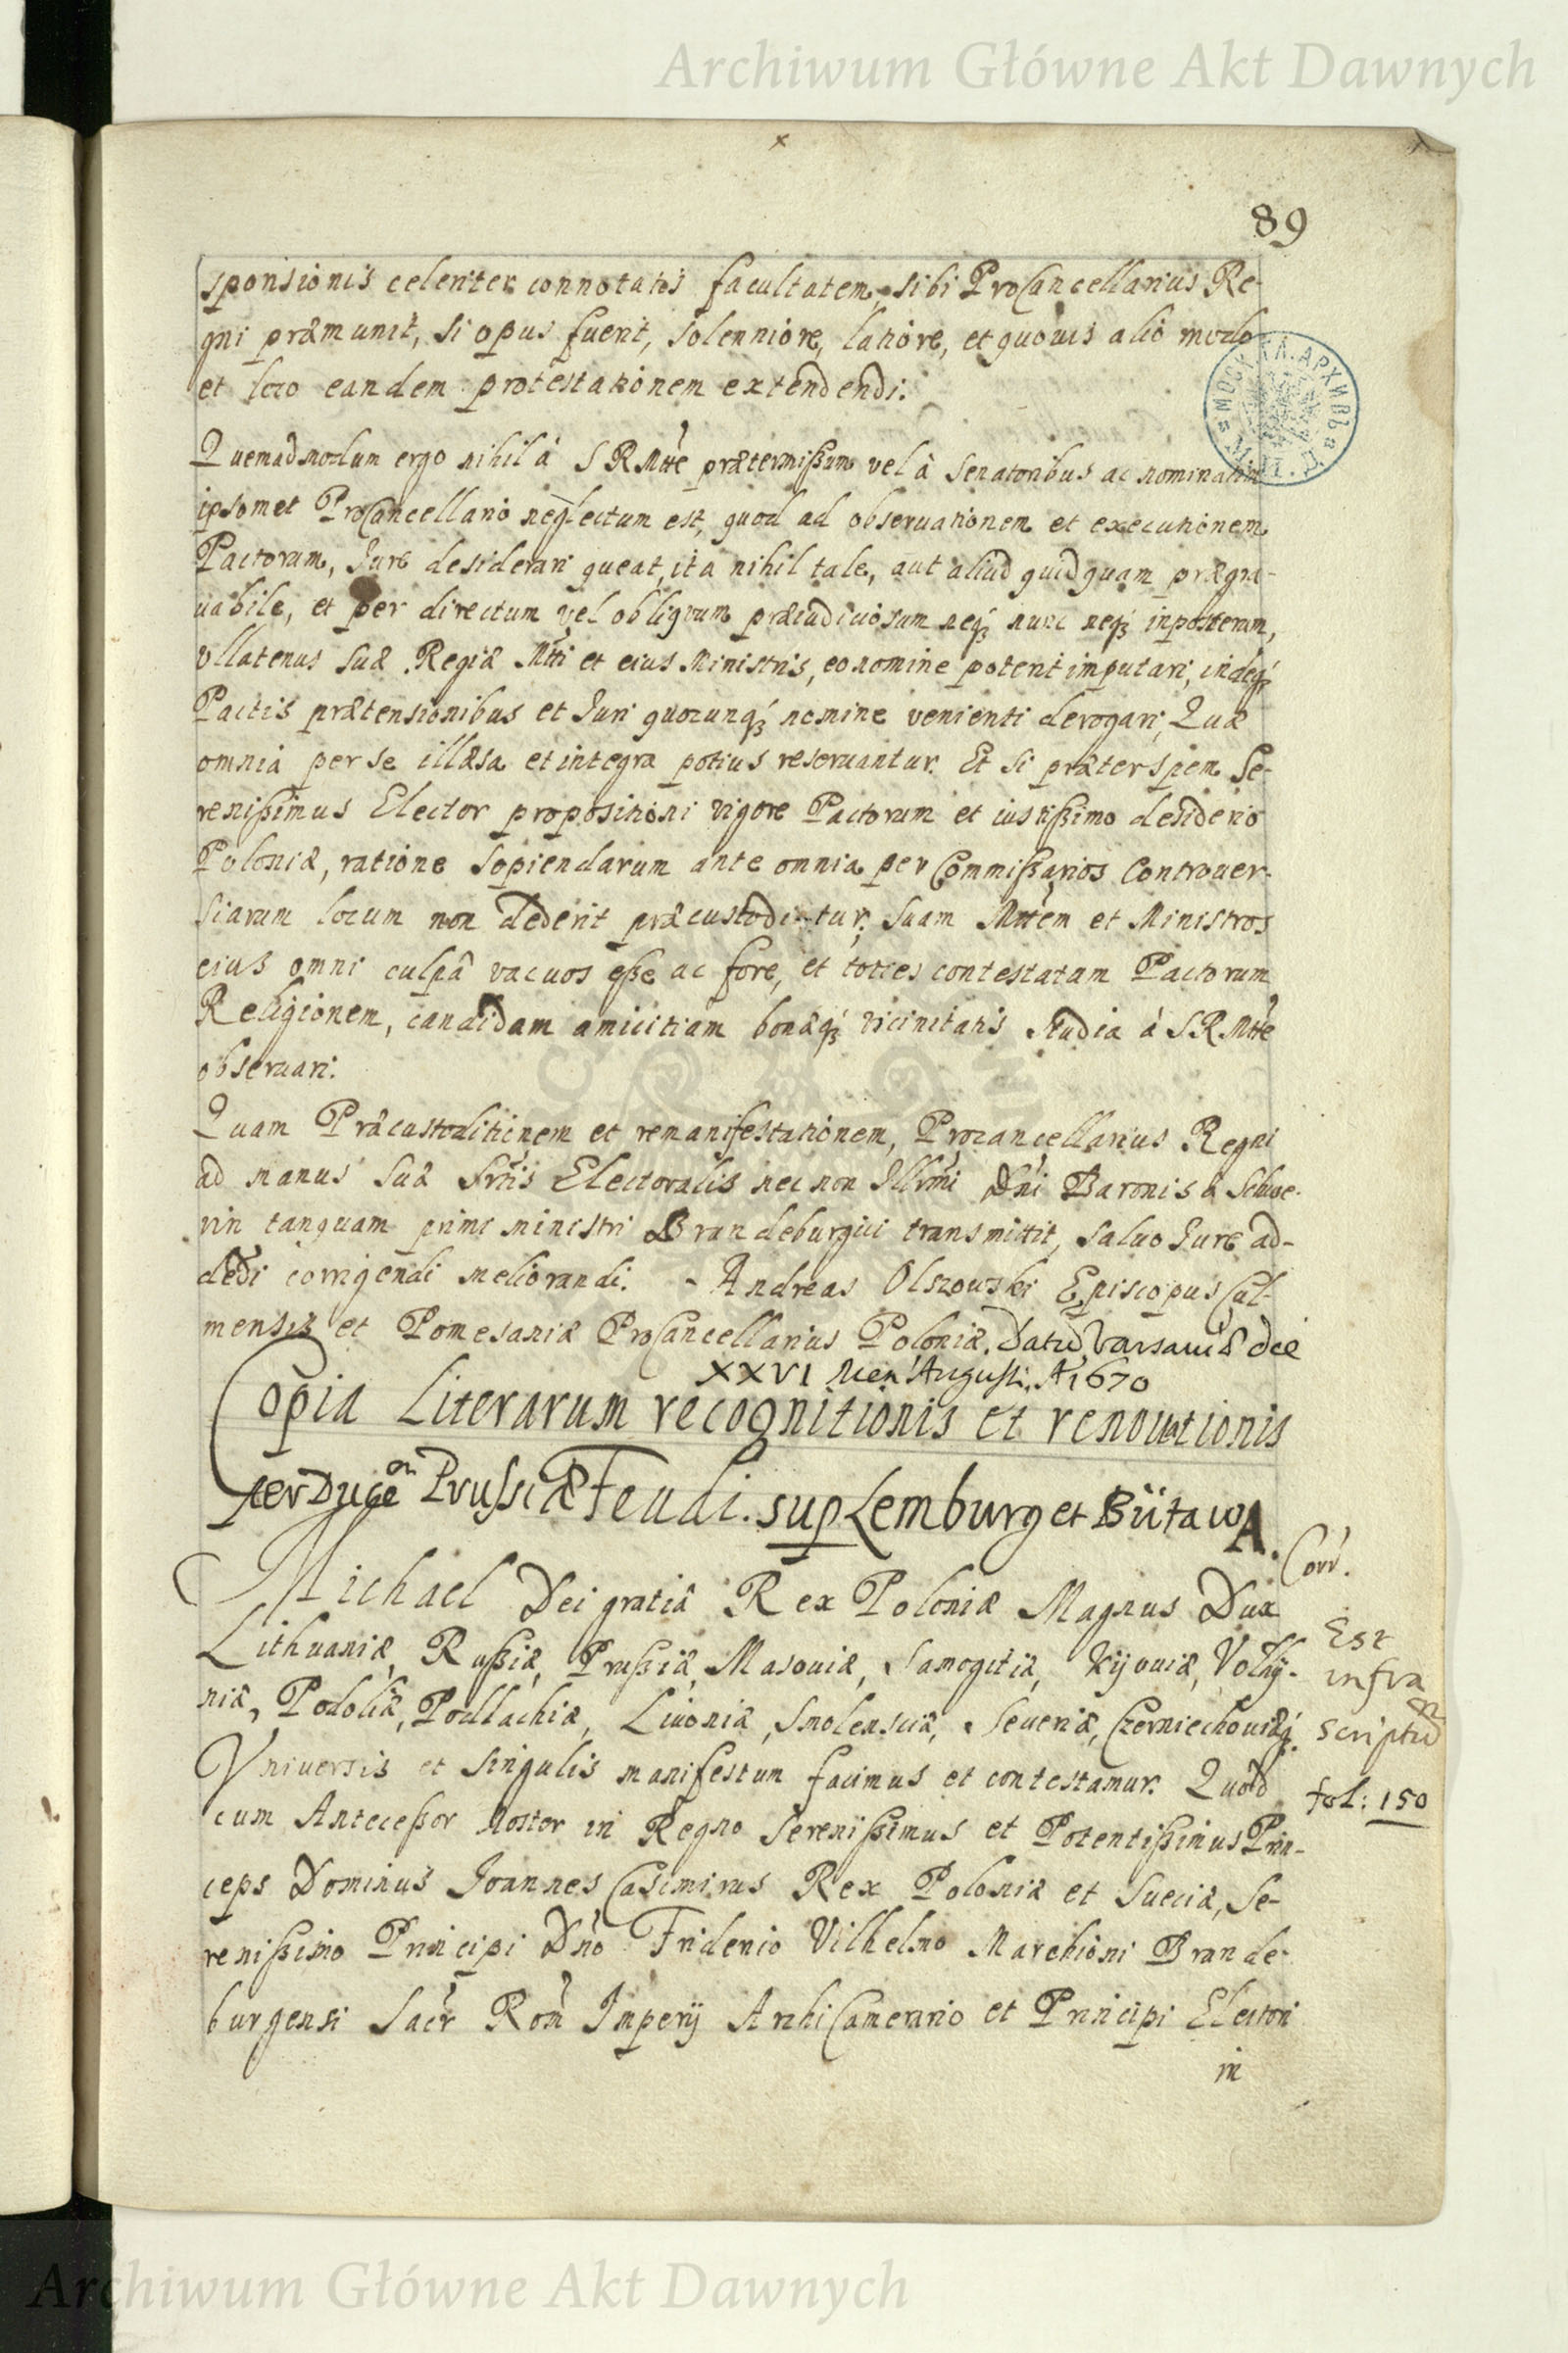 Archiwum Główne Akt Dawnych
89
sponsionis celeriter connotatis facultatem, sibi ProCancellarius Re-
gni præmunit, si opus fuerit, solenniore, latiore, et quouis alio modo
et loco eandem protestationem extendendi.
Quemadmodum ergo nihil à S R Mtte prætermißum vel à Senatoribus ac nominatim
ipsomet ProCancellario neglectum est, quod ad obseruationem et executionem
Pactorum, Jure desiderari queat, ita nihil tale, aut aliud quidquam prægra-
uabile, et per directum vel obliquum præiudiciosum neq; nunc neq; inposterum,
vllatenus Suæ Regiæ Mtti et eius Ministris, eo nomine poterit imputari, indeq;
Pactis prætensionibus et Juri quocunq; nomine venienti derogari, Quæ
omnia per se illæsa et integra potius reseruantur. Et si præter spem Se-
renißimus Elector propositioni vigore Pactorum et iustißimo desiderio
Poloniæ, ratione sopiendarum ante omnia per Commißarios Controuer-
siarum locum non dederit præcustoditur, Suam Mttem et Ministros
eius omni culpâ vacuos eße ac fore, et toties contestatam Pactorum
Religionem, candidam amicitiam bonæq; vicinitatis studia à S R Mtte
obseruari.
Quam Præcustoditionem et remanifestationem, Procancellarius Regni
ad manus Suæ Srtis Electoralis nec non Illrmi Dni Baronis à Schwe-
rin tanquam primi ministri Brandeburgici transmittit, saluo Jure ad-
dedi corrigendi meliorandi. - Andreas Olszowski Episcopus Cul-
mensis et Pomesaniæ ProCancellarius Poloniæ. Datu Varsauiæ die
XXVI Men Augusti, A 1670
Copia Literarum recognitionis et renouationis
per Duce Prussiæ Feudi. sup Lemburg et Bütaw A.
Corr.
Michael Dei gratiâ Rex Poloniæ Magnus Dux
Lithuaniæ, Rußiæ, Prußiæ, Masouiæ, Samogitiæ, Kijouiæ, Volhÿ-
niæ, Podoliæ, Podlachiæ, Liuoniæ, Smolensciæ, Seueriæ, Czerniechouiæq;
Vniuersis et singulis manifestum facimus et contestamur. Quod
cum Anteceßor Noster in Regno Serenißimus et Potentißimus Prin-
ceps Dominus Joannes Casimirus Rex Poloniæ et Sueciæ, Se-
renißimo Principi Dno Friderico Vilhelmo Marchioni Brande-
burgensi Sacr Rom Imperij ArchiCamerario et Principi Electori
in
Est
infra
scriptu
fol: 150
Archiwum Główne Akt Dawnych